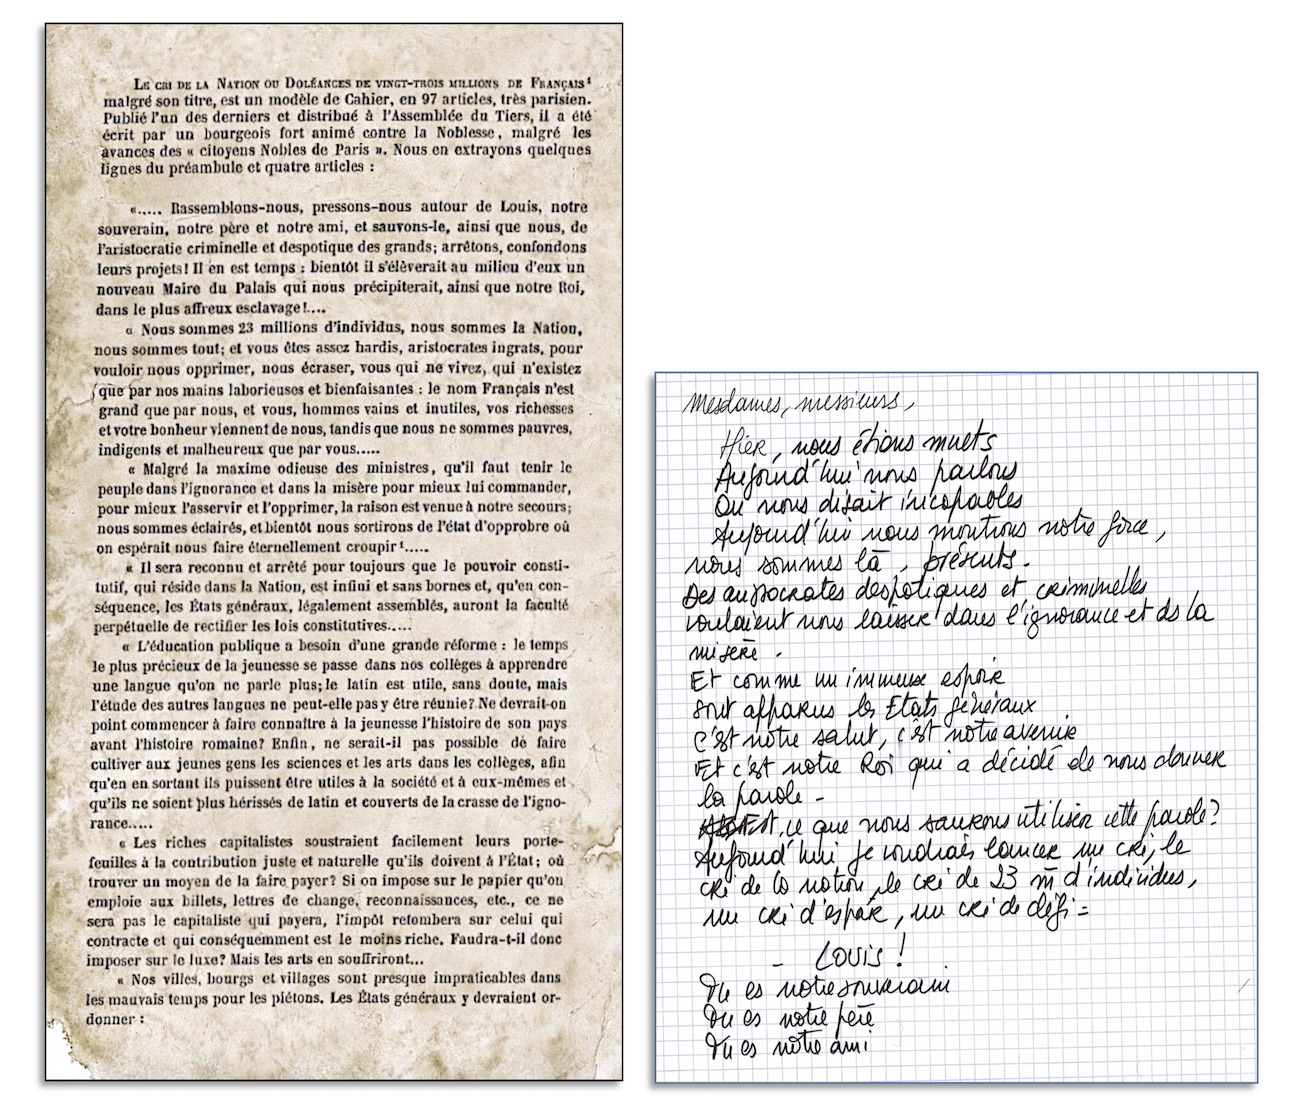 LE CRI DE LA NATION OU DOLÉANCES DE VINGT-TROIS MILLIONS DE FRANÇAIS¹
malgré son titre, est un modèle de Cahier, en 97 articles, très parisien.
Publié l'un des derniers et distribué à l'Assemblée du Tiers, il a été
écrit par un bourgeois fort animé contre la Noblesse, malgré les
avances des « citoyens Nobles de Paris ». Nous en extrayons quelques
lignes du préambule et quatre articles :
«..... Rassemblons-nous, pressons-nous autour de Louis, notre
souverain, notre père et notre ami, et sauvons-le, ainsi que nous, de
l'aristocratie criminelle et despotique des grands; arrêtons, confondons
leurs projets! Il en est temps : bientôt il s'élèverait au milieu d'eux un
nouveau Maire du Palais qui nous précipiterait, ainsi que notre Roi,
dans le plus affreux esclavage!....
« Nous sommes 23 millions d'individus, nous sommes la Nation,
nous sommes tout; et vous êtes assez hardis, aristocrates ingrats, pour
vouloir nous opprimer, nous écraser, vous qui ne vivez, qui n'existez
que par nos mains laborieuses et bienfaisantes : le nom Français n'est
grand que par nous, et vous, hommes vains et inutiles, vos richesses
et votre bonheur viennent de nous, tandis que nous ne sommes pauvres,
indigents et malheureux que par vous.....
« Malgré la maxime odieuse des ministres, qu'il faut tenir le
peuple dans l'ignorance et dans la misère pour mieux lui commander,
pour mieux l'asservir et l'opprimer, la raison est venue à notre secours;
nous sommes éclairés, et bientôt nous sortirons de l'état d'opprobre où
on espérait nous faire éternellement croupir¹.....
« Il sera reconnu et arrêté pour toujours que le pouvoir consti-
tutif, qui réside dans la Nation, est infini et sans bornes et, qu'en con-
séquence, les États généraux, légalement assemblés, auront la faculté
perpétuelle de rectifier les lois constitutives.....
« L'éducation publique a besoin d'une grande réforme : le temps
le plus précieux de la jeunesse se passe dans nos collèges à apprendre
une langue qu'on ne parle plus; le latin est utile, sans doute, mais
l'étude des autres langues ne peut-elle pas y être réunie? Ne devrait-on
point commencer à faire connaître à la jeunesse l'histoire de son pays
avant l'histoire romaine? Enfin, ne serait-il pas possible de faire
cultiver aux jeunes gens les sciences et les arts dans les collèges, afin
qu'en en sortant ils puissent être utiles à la société et à eux-mêmes et
qu'ils ne soient plus hérissés de latin et couverts de la crasse de l'igno-
rance.....
« Les riches capitalistes soustraient facilement leurs porte-
feuilles à la contribution juste et naturelle qu'ils doivent à l'État; où
trouver un moyen de la faire payer? Si on impose sur le papier qu'on
emploie aux billets, lettres de change, reconnaissances, etc., ce ne
sera pas le capitaliste qui payera, l'impôt retombera sur celui qui
contracte et qui conséquemment est le moins riche. Faudra-t-il donc
imposer sur le luxe? Mais les arts en souffriront...
« Nos villes, bourgs et villages sont presque impraticables dans
les mauvais temps pour les piétons. Les États généraux y devraient or-
donner :
Mesdames, messieurs,
Hier, nous étions muets
Aujourd'hui nous parlons
On nous disait incapables
Aujourd'hui nous montrons notre force,
nous sommes là, présents.
Des autocrates despotiques et criminelles
voulaient nous laisser dans l'ignorance et ds la
misère.
Et comme un immense espoir
sont apparus les Etats généraux
C'est notre salut, c'est notre avenir
Et c'est notre Roi qui a décidé de nous donner
la parole -
ce que nous saurons utiliser cette parole?
Aujourd'hui je voudrais lancer un cri, le
cri de la nation, le cri de 23 m d'individus,
un cri d'espoir, un cri de défi =
- LOUIS !
Tu es notre souverain
Tu es notre père
Tu es notre ami